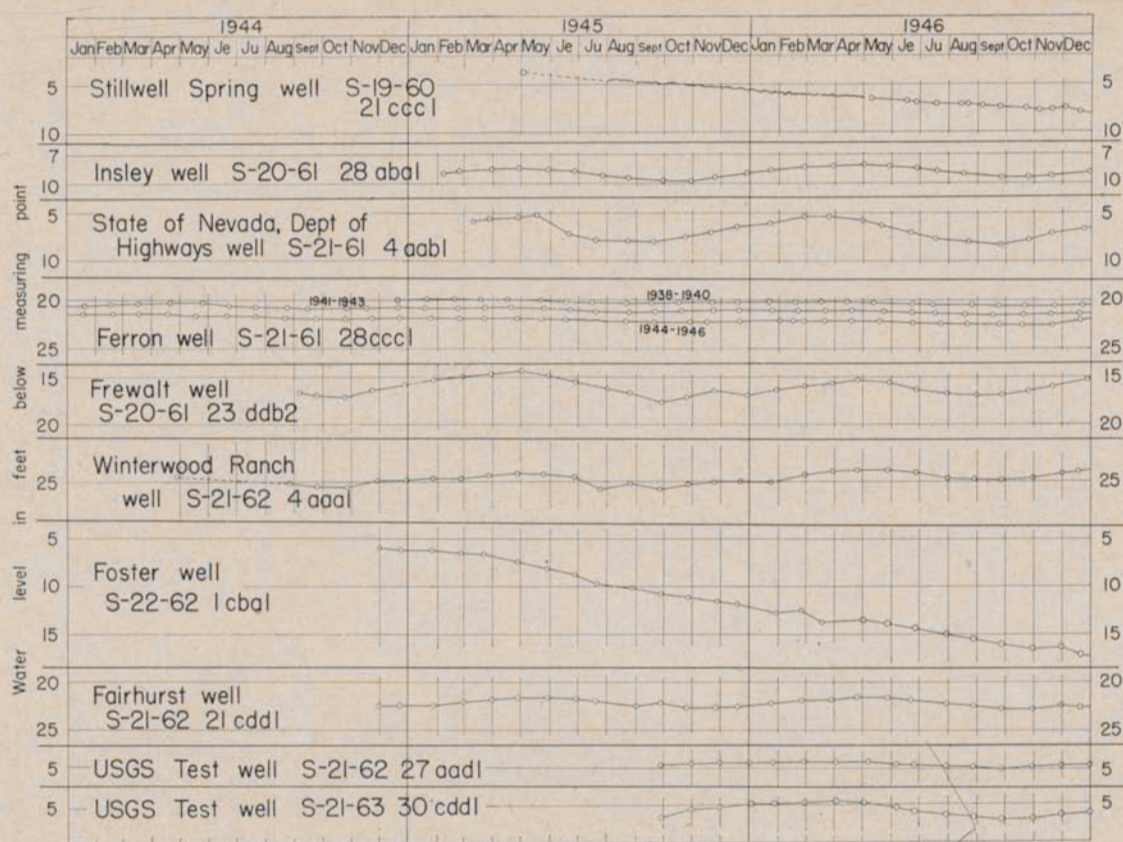 1944 1945 1946
Jan Feb Mar Apr May Je Ju Aug Sept Oct Nov Dec Jan Feb Mar Apr May Je Ju Aug Sept Oct Nov Dec Jan Feb Mar Apr May Je Ju Aug Sept Oct Nov Dec
Water level in feet below measuring point
5 Stillwell Spring well S-19-60 5
21 ccc1
10 10
7 7
Insley well S-20-61 28 aba1
10 10
5 State of Nevada, Dept of 5
Highways well S-21-61 4 aab1
10 10
20 1941-1943 1938-1940 20
1944-1946
Ferron well S-21-61 28ccc1
25 25
15 Frewalt well 15
S-20-61 23 ddb2
20 20
Winterwood Ranch
25 well S-21-62 4 aaa1 25
5 5
Foster well
10 10
S-22-62 1 cba1
15 15
20 Fairhurst well 20
S-21-62 21 cdd1
25 25
5 USGS Test well S-21-62 27 aad1 5
5 USGS Test well S-21-63 30 cdd1 5